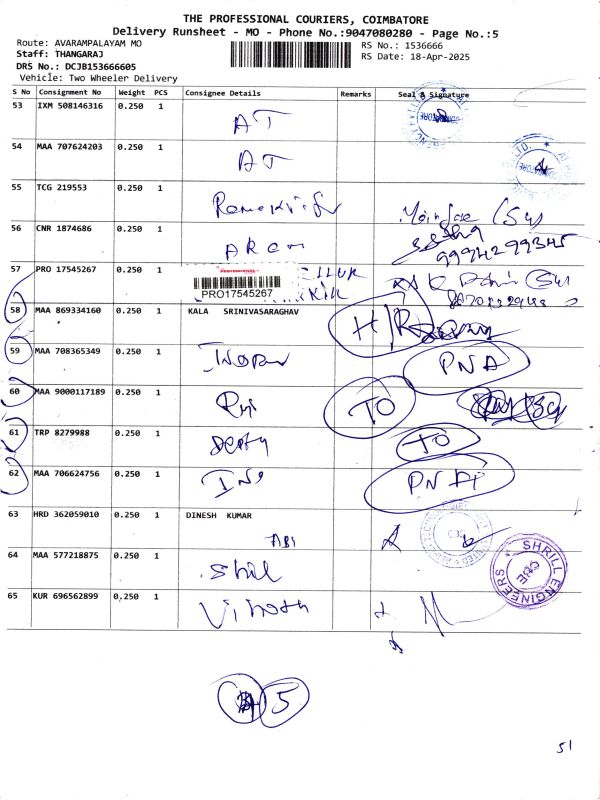 THE PROFESSIONAL COURIERS, COIMBATORE
Delivery Runsheet - MO - Phone No.:9047080280 - Page No.:5
Route: AVARAMPALAYAM MO
RS No.: 1536666
Staff: THANGARAJ
RS Date: 18-Apr-2025
DRS No.: DCJB153666605
Vehicle: Two Wheeler Delivery
S No Consignment No Weight PCS Consignee Details Remarks Seal & Signature
53 IXM 508146316 0.250 1 AT
54 MAA 707624203 0.250 1 AT
55 TCG 219553 0.250 1
56 CNR 1874686 0.250 1
9994299345
57 PRO 17545267 0.250 1
PROFESSIONAL
PRO17545267
58 MAA 869334160 0.250 1 KALA SRINIVASARAGHAV H/R
59 MAA 708365349 0.250 1 PNA
60 MAA 9000117189 0.250 1 TO
61 TRP 8279988 0.250 1 TO
62 MAA 706624756 0.250 1 PNA
63 HRD 362059010 0.250 1 DINESH KUMAR
ABI
64 MAA 577218875 0.250 1
SHRILL ENGINEERS
CBE
65 KUR 696562899 0.250 1 Vinoth
5
51